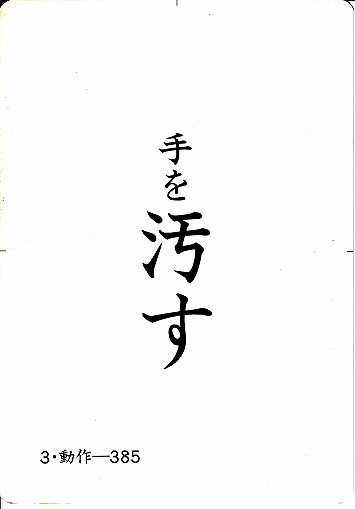 手を汚す
3・動作—385